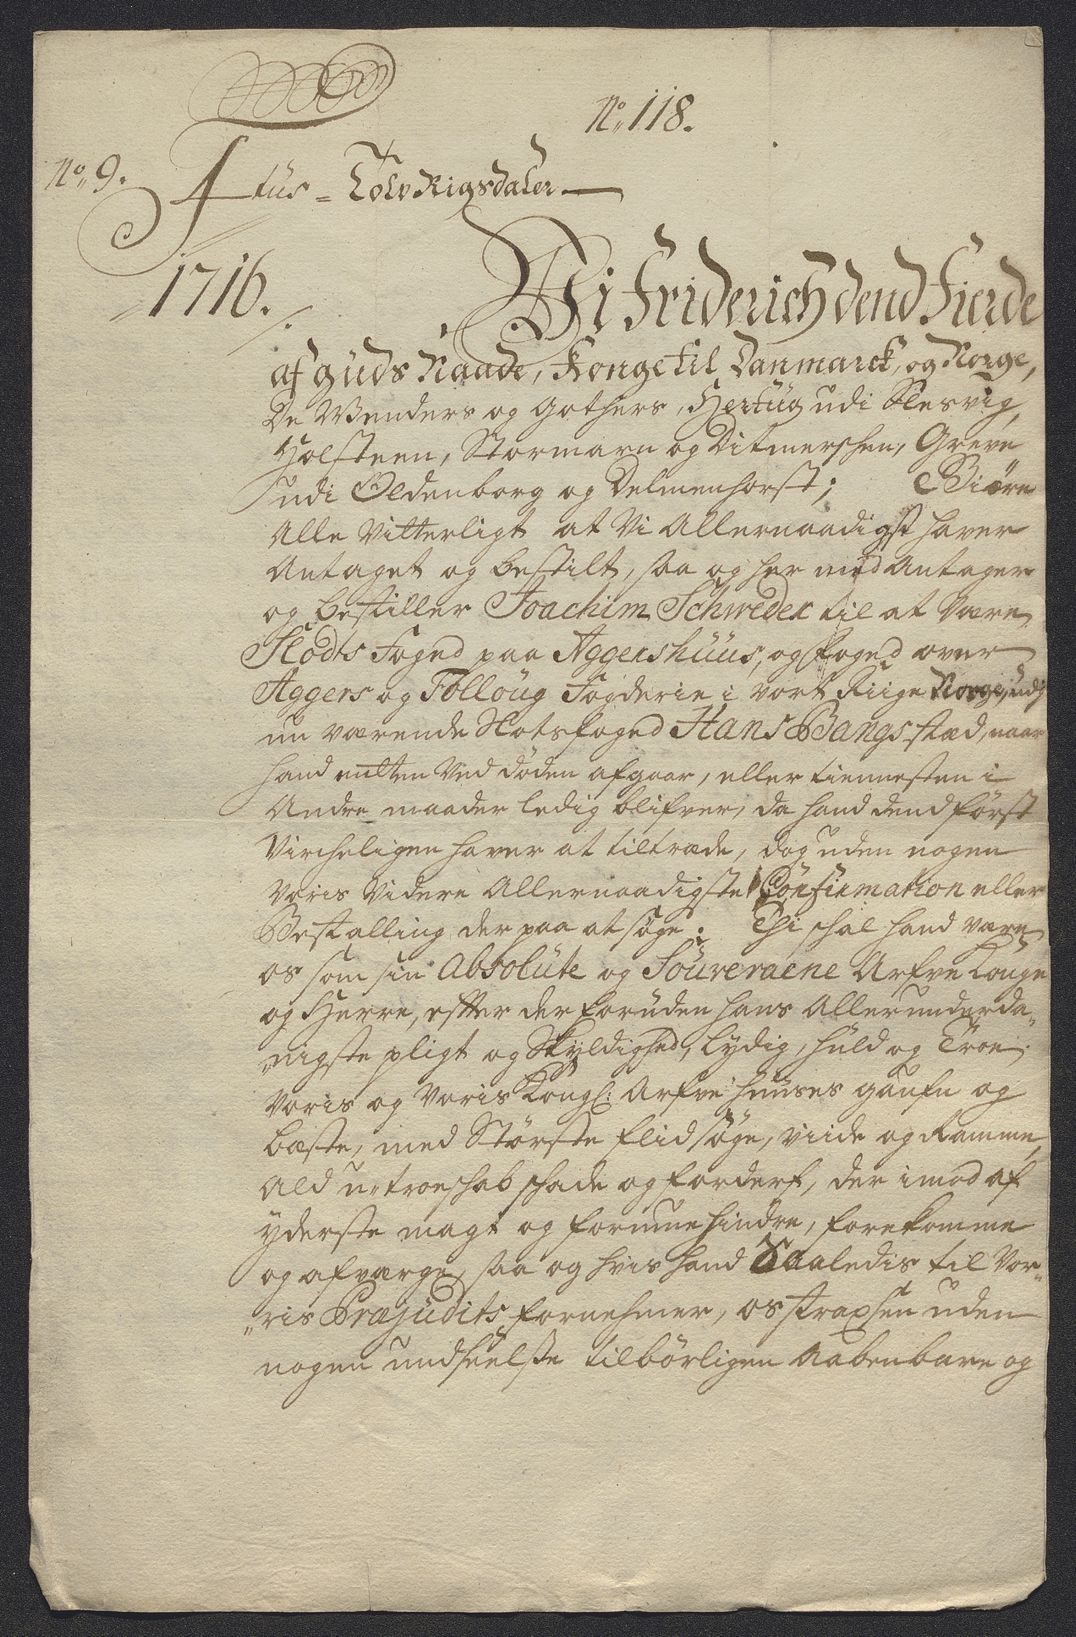 No. 118.
No. 9.
tus = Tolv Rigsdaler
1716.
Vi Friderich dend Fierde
af Guds Naade, Konge til Danmarck, og Norge,
De Wenders og Gothers, Hertug udi Slesvig,
Holsteen, Stormarn og Ditmerschen, Greve
udi Oldenborg og Delmenhorst; Giöre
Alle Vitterligt at Vi Allernaadigst haver
Antaget og bestilt, saa og her med Antager
og bestiller Joachim Schweder til at være
Slodts Foged paa Aggershuus, og foged over
Aggers og Folloug Fogderie i vort Riige Norge, udj
nu værende Slotsfoged Hans Bangs stæd, naar
hand enten ved döden afgaar, eller tiennesten i
Andre maader ledig blifver, da hand dend först
Vircheligen haver at tiltræde, dog uden nogen
Voris videre Allernaadigste Confirmation eller
Bestalling der paa at söge. Thi schal hand være
os som sin Absolute og Souveraene Arfve Konge
og Herre, efter der foruden hans Allerunderda„
„nigste pligt og Skyldighed, Lydig, huld og Troe,
Voris og Voris Kongl: Arfve Huuses gaufn og
beste, med Störste flid söge, viide og Ramme,
Ald u-troeschab schade og forderf, der imod af
yderste magt og formue hindre, forekomme
og afværge, saa og hvis hand Saaledis til Vor„
„ris Præjudits fornehmer, os strapsen uden
nogen undseelse tilbörligen Aabenbare og